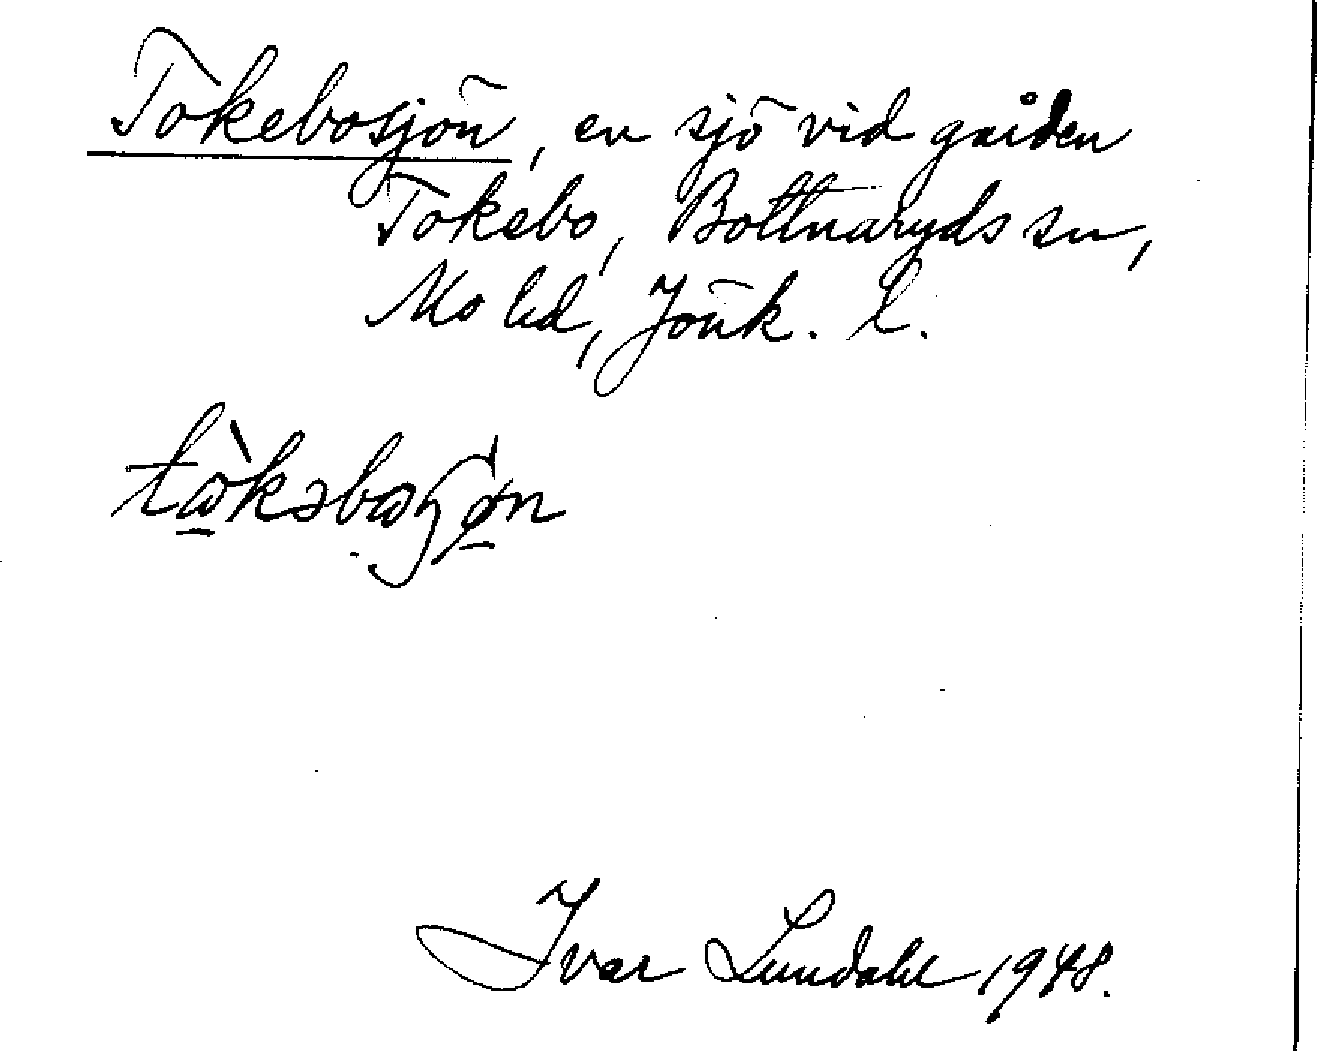 Tokebosjön, en sjö vid gården
Tokebo, Bottnaryds sn,
Mo hd, Jönk. l.
Ivar Lundahl 1948.